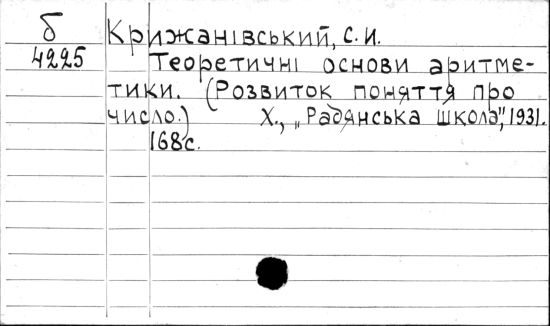 б
4225
Крижанівський, С. И.
Теоретичні основи аритме-
тики. (Розвиток поняття про
число.) Х., „Радянська школа", 1931.
168с.